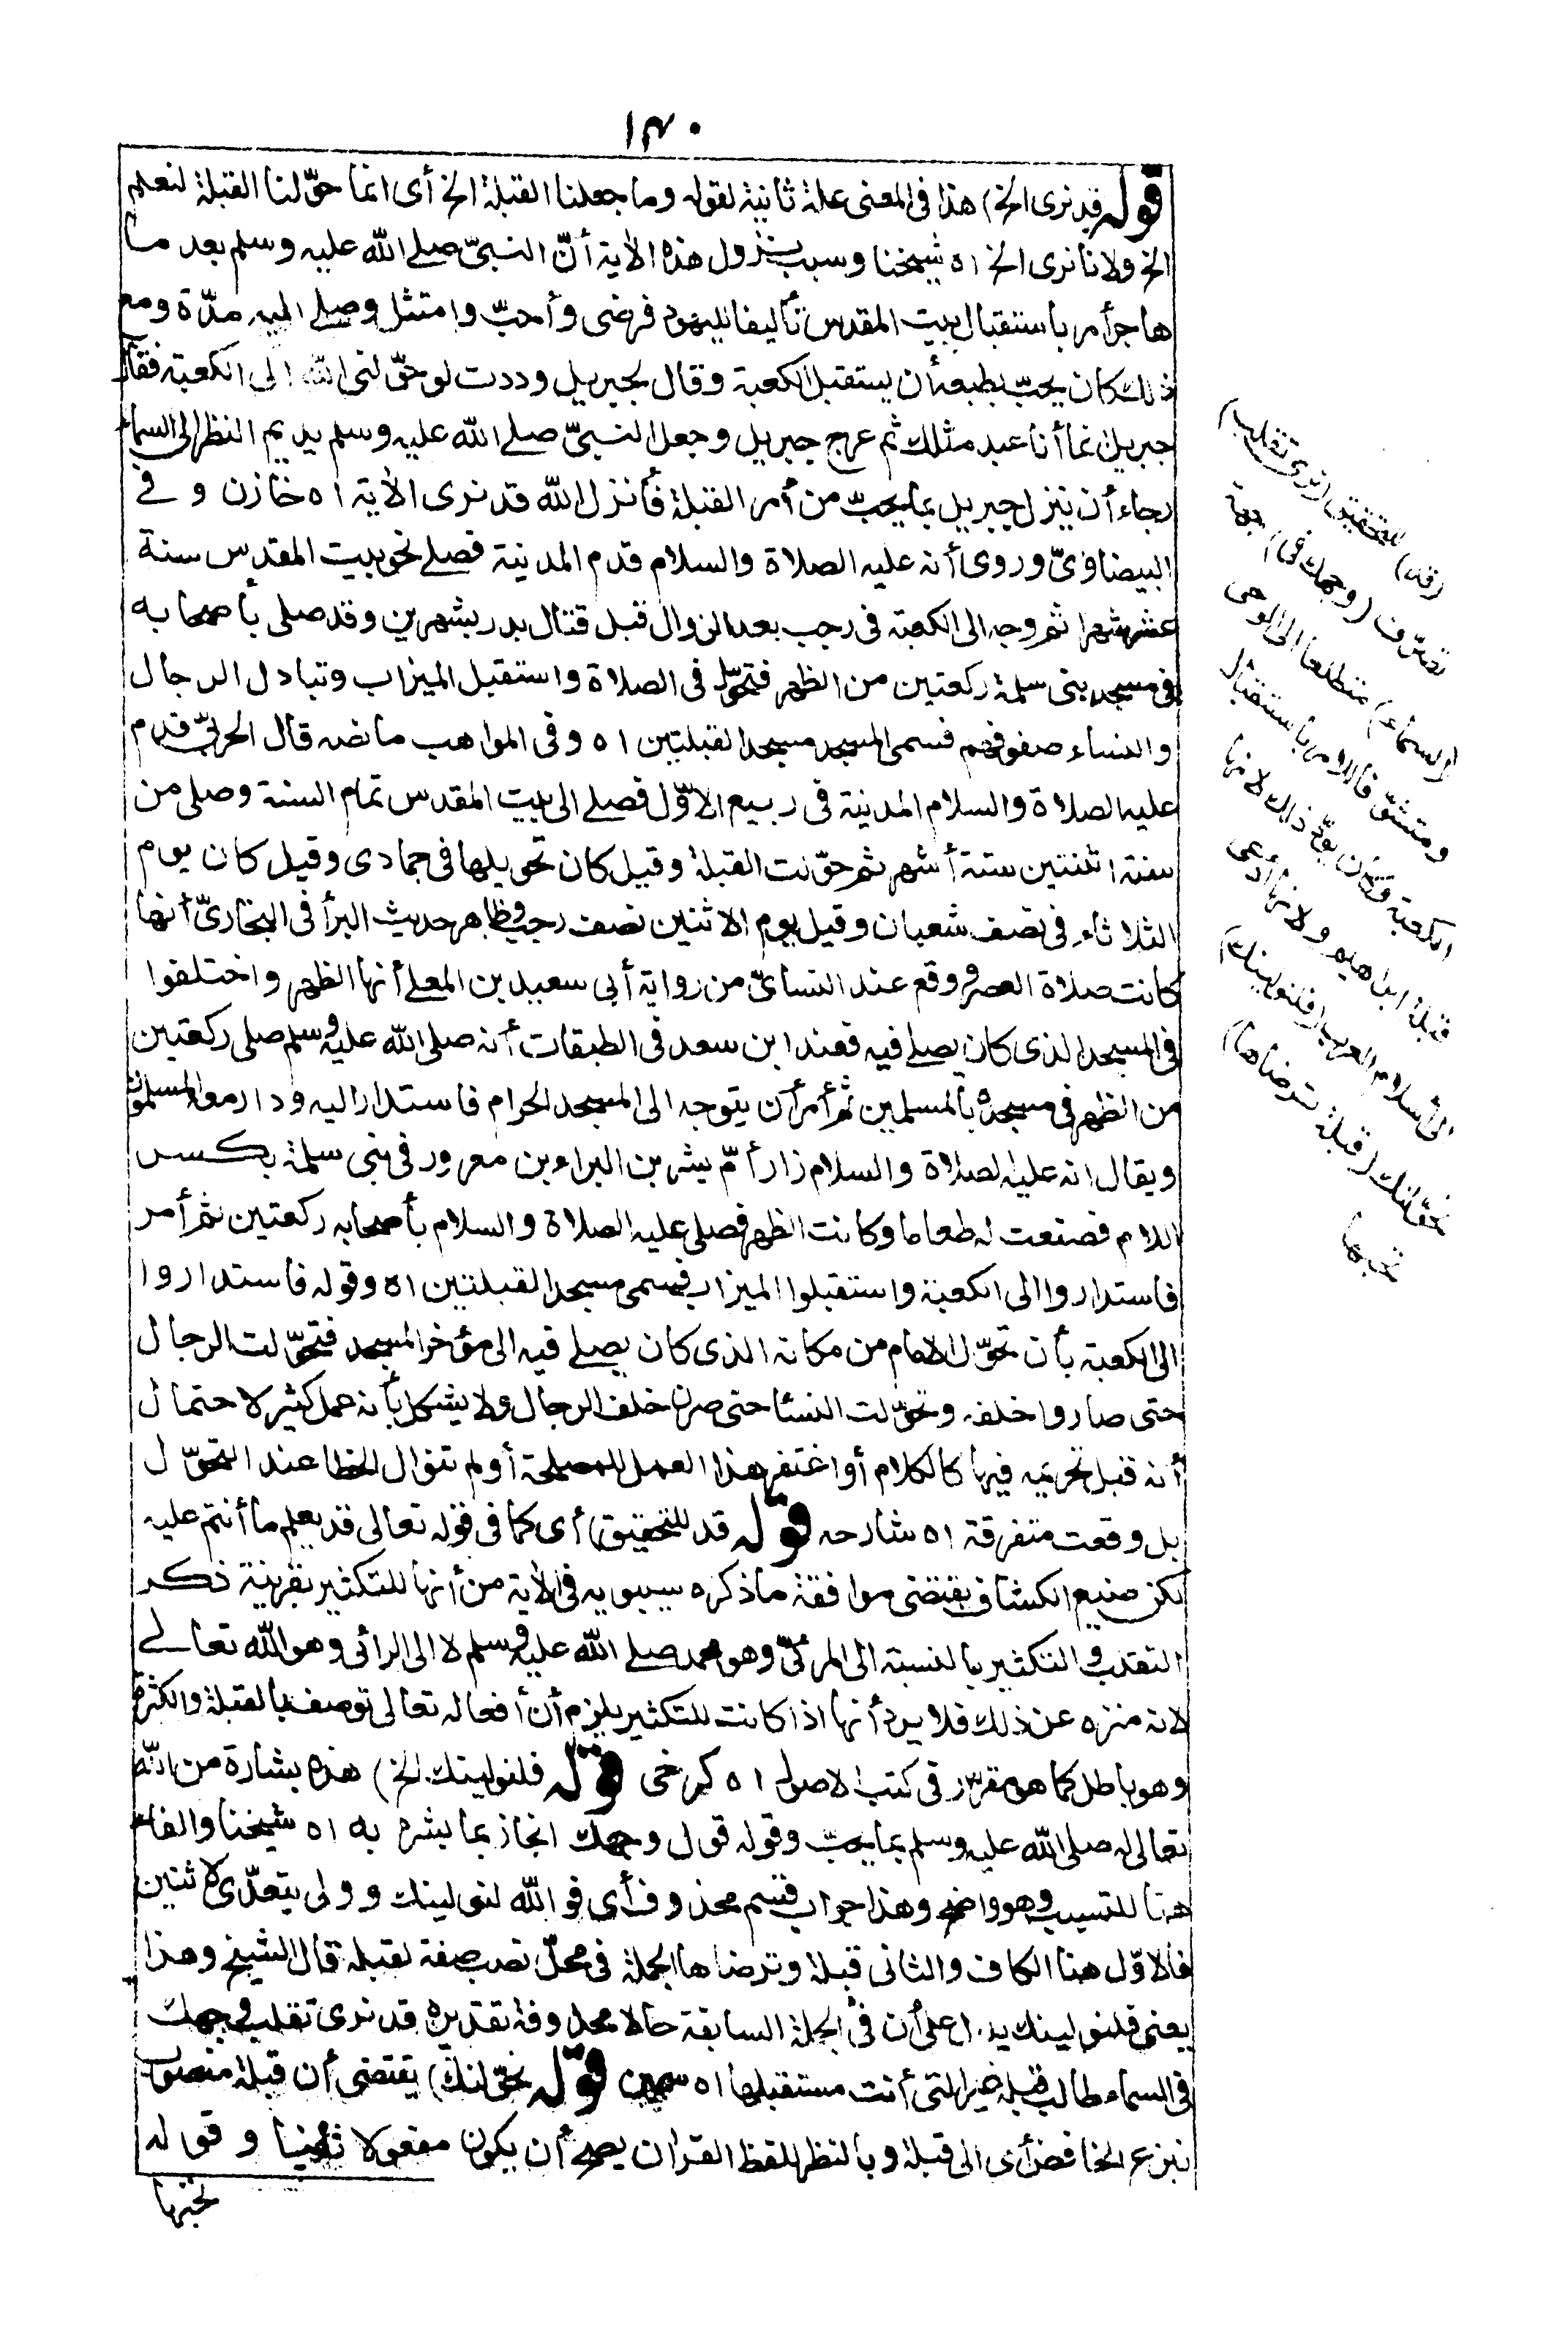 ١٣٠
قوله قد نرى الخ) هذا فى المعنى علة ثانية لقوله وما جعلنا القبلة الخ أى انما حوّلنا القبلة لنعلم
الخ ولاننا نرى الخ اه شيخنا وسبب نزول هذه الاٰية أنّ النبىّ صلى الله عليه وسلم بعد ما
هاجر أمر باستقبال بيت المقدس تأليفا لليهود فرضى وأحبّ وامتثل وصلى اليه مدّة ومع
ذلك كان يحبّ بطبعه أن يستقبل الكعبة وقال لجبريل وددت لو حوّلنى الله الى الكعبة فقال
جبريل انما أنا عبد مثلك ثم عرج جبريل وجعل النبىّ صلى الله عليه وسلم يديم النظر الى السماء
رجاء أن ينزل جبريل بما يحبّ من أمر القبلة فأنزل الله قد نرى الاٰية اه خازن و فى
البيضاوىّ وروى أنه عليه الصلاة والسلام قدم المدينة فصلى نحو بيت المقدس ستة
عشر شهرا ثم وجه الى الكعبة فى رجب بعد الزوال قبل قتال بدر بشهرين وقد صلى بأصحابه
فى مسجد بنى سلمة ركعتين من الظهر فتحوّل فى الصلاة واستقبل الميزاب وتبادل الرجال
والنساء صفوفهم فسمى المسجد مسجد القبلتين اه وفى المواهب ما نصه قال الحربىّ قدم
عليه الصلاة والسلام المدينة فى ربيع الاوّل فصلى الى بيت المقدس تمام السنة وصلى من
سنة اثنتين ستة أشهر ثم حوّلت القبلة وقيل كان تحويلها فى جمادى وقيل كان يوم
الثلاثاء فى نصف شعبان وقيل يوم الاثنين نصف رجب وظاهر حديث البرأ فى البخارىّ أنها
كانت صلاة العصر ووقع عند النسائىّ من رواية أبى سعيد بن المعلى أنها الظهر واختلفوا
فى المسجد الذى كان يصلى فيه فعند ابن سعد فى الطبقات أنه صلى الله عليه وسلم صلى ركعتين
من الظهر فى مسجده بالمسلمين ثم أمر أن يتوجه الى المسجد الحرام فاستدار اليه ودار معه المسلمون
ويقال انه عليه الصلاة والسلام زار أمّ بشر بن البراء بن معرور فى بنى سلمة بكسر
اللام فصنعت له طعاما وكانت الظهر فصلى عليه الصلاة والسلام بأصحابه ركعتين ثم أمر
فاستداروا الى الكعبة واستقبلوا الميزاب فسمى مسجد القبلتين اه وقوله فاستداروا
الى الكعبة بأن تحوّل الامام من مكانه الذى كان يصلى فيه الى مؤخر المسجد فتحوّلت الرجال
حتى صاروا خلفه وتحوّلت النسا حتى صرن خلف الرجال ولا يشكل بأنه عمل كثير لاحتمال
أنه قبل تحريمه فيها كالكلام أو اغتفر هذا العمل للمصلحة أو لم تتوال الخطا عند التحوّل
بل وقعت متفرقة اه شارحه قوله قد للتحقيق) أى كما فى قوله تعالى قد يعلم ما أنتم عليه
لكن صنيع الكشاف يقتضى موافقة ما ذكره سيبويه فى الاٰية من أنها للتكثير بقرينة ذكر
التقلب والتكثير بالنسبة الى المرئىّ وهو محمد صلى الله عليه وسلم لا الى الرائى وهو الله تعالى
لانه منزه عن ذلك فلا يرد أنها اذا كانت للتكثير يلزم أن أفعاله تعالى توصف بالقبلة والكثرة
وهو باطل كما هو مقرّر فى كتب الاصول اه كرخى قوله فلنولينك الخ) هذه بشارة من الله
تعالى له صلى الله عليه وسلم بما يحبّ وقوله فول وجهك انجاز بما بشره به اه شيخنا والفاء
هنا للتسبب وهو واضح وهذا جواب قسم محذوف أى فو الله لنولينك وولى يتعدّى لاثنين
فالاوّل هنا الكاف والثانى قبلة وترضاها الجملة فى محلّ نصب صفة لقبلة قال الشيخ وهذا
يعنى فلنولينك يدل على أن فى الجملة السابقة حالا محذوفة تقديره قد نرى تقلب وجهك
فى السماء طالب قبلة غير التى أنت مستقبلها اه سمين قوله نحوّلنك) يقتضى أن قبلة منصوب
بنزع الخافض أى الى قبلة وبالنظر للفظ القرآن يصح أن يكون مفعولا ثانيا و قوله
تحبّها
(قد) للتحقيق (نرى تقلب)
تصرّف (وجهك فى) جهة
(السماء) متطلعا الى الوحى
ومتشوّقا للامر باستقبال
الكعبة وكان يودّ ذلك لانها
قبلة ابراهيم ولانه أدعى
الى اسلام العرب (فلنولينك)
نحوّلنك (قبلة ترضاها)
تحبها